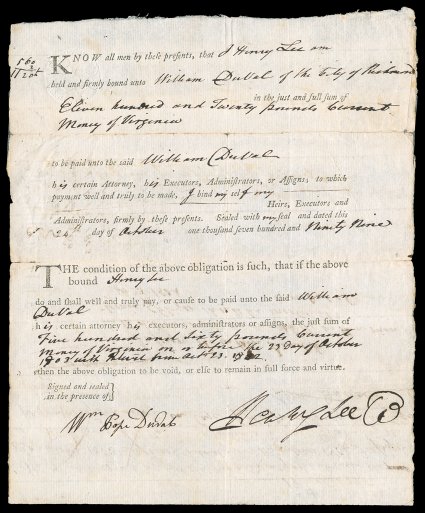 560
2
1120
KNOW all men by these presents, that I Henry Lee am
held and firmly bound unto William DuVal of the City of Richmond
in the just and full sum of
Eleven hundred and Twenty pounds Current
Money of Virginia
to be paid unto the said William DuVal
his certain Attorney, his Executors, Administrators, or Assigns; to which
payment well and truly to be made, I bind my self my
Heirs, Executors and
Administrators, firmly by these presents. Sealed with my seal and dated this
24th day of October one thousand seven hundred and Ninety Nine
THE condition of the above obligation is such, that if the above
bound Henry Lee
do and shall well and truly pay, or cause to be paid unto the said William
DuVal
his certain attorney his executors, administrators or assigns, the just sum of
Five hundred and Sixty pounds Current
Money of Virginia on or before the 23 Day of October
1803 with Interest from Octr. 23. 1802
then the above obligation to be void, or else to remain in full force and virtue.
Signed and sealed
in the presence of
Wm Pope Duval
Henry Lee